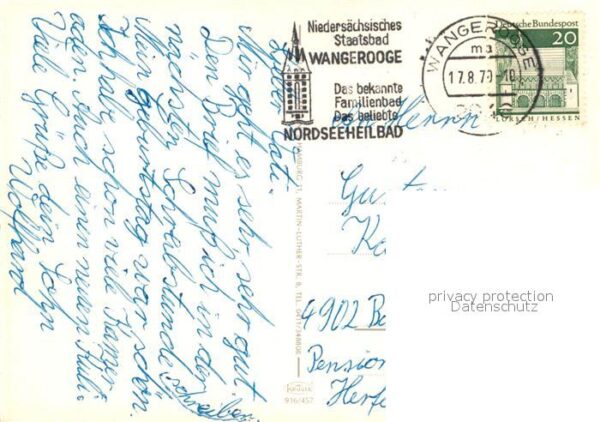 Niedersächsisches
Staatsbad
WANGEROOGE
Das bekannte
Familienbad
Das beliebte
NORDSEEHEILBAD
WANGEROOGE
17.8.70-10
Deutsche Bundespost
20
LORSCH/HESSEN
Lieber Vati.
Mir geht es sehr, sehr gut
Den Brief muß ich in der
nächsten Schreibstunde schreiben.
Mein Geburtstag war schön.
Ich hab schon viel
oder auch einen neuen
Viel Grüße dein Sohn
an Herrn
4902 B
Pension
Herfo
HAMBURG 51, MARTIN-LUTHER-STR. 9, TEL. 0411/348806
KRÜGER
916/457
privacy protection
Datenschutz